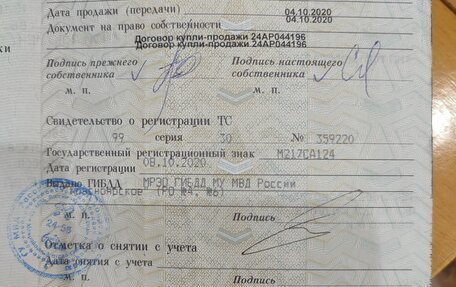 Дата продажи (передачи) 04.10.2020
04.10.2020
Документ на право собственности
Договор купли-продажи 24АР044196
Договор купли-продажи 24АР044196
Подпись прежнего собственника
Подпись настоящего собственника
М. П. М. П.
Свидетельство о регистрации ТС
99 серия 30 № 359220
Государственный регистрационный знак М217СА124
Дата регистрации 08.10.2020
Выдано ГИБДД МРЭО ГИБДД МУ МВД России
Красноярское (РО №4, №6)
М. П. Подпись
Отметка о снятии с учета
Дата снятия с учета
М. П. Подпись